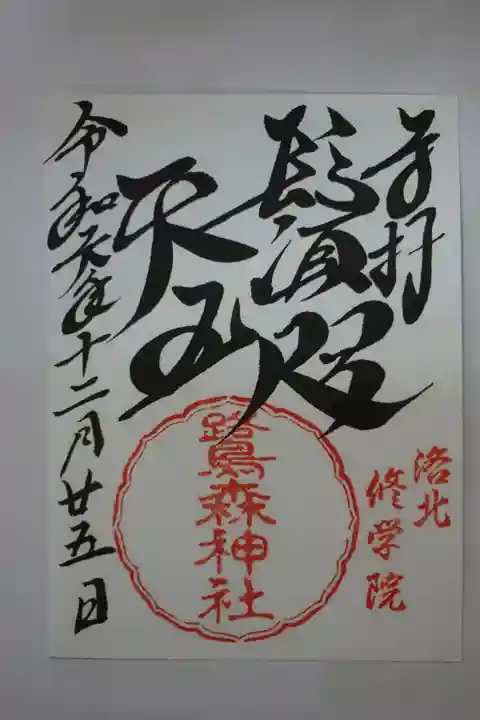 奉拝
鬚咫
天王
令和元年十二月廿五日
洛北
修学院
鷺森神社